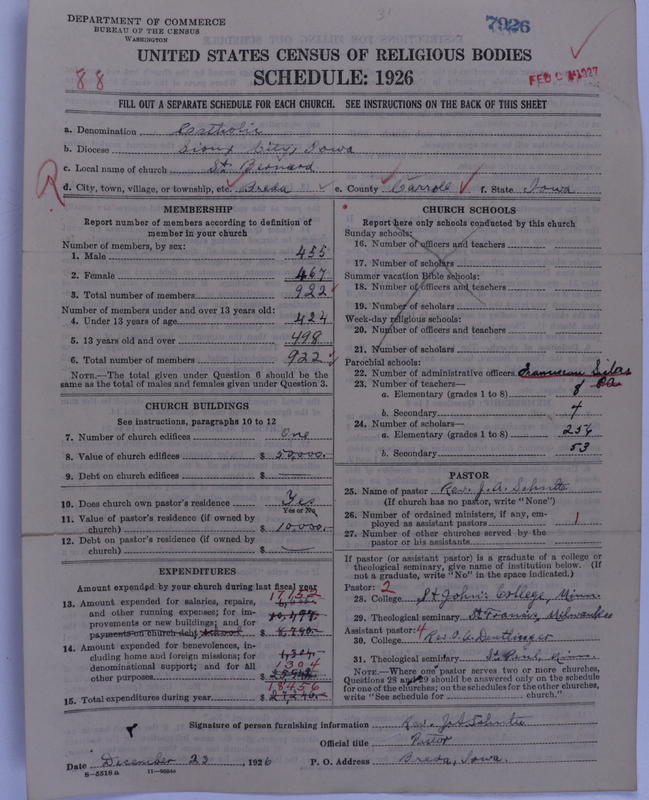 DEPARTMENT OF COMMERCE
BUREAU OF THE CENSUS
WASHINGTON
7926
UNITED STATES CENSUS OF RELIGIOUS BODIES
SCHEDULE: 1926
88
FEB 1927
FILL OUT A SEPARATE SCHEDULE FOR EACH CHURCH. SEE INSTRUCTIONS ON THE BACK OF THIS SHEET
a. Denomination Catholic
b. Diocese Sioux City, Iowa
c. Local name of church St. Bernard
R
d. City, town, village, or township, etc. Breda e. County Carroll f. State Iowa
MEMBERSHIP
Report number of members according to definition of
member in your church
Number of members, by sex:
1. Male 455
2. Female 467
3. Total number of members 922
Number of members under and over 13 years old:
4. Under 13 years of age 424
5. 13 years old and over 498
6. Total number of members 922
NOTE.—The total given under Question 6 should be the
same as the total of males and females given under Question 3.
CHURCH BUILDINGS
See instructions, paragraphs 10 to 12
7. Number of church edifices One
8. Value of church edifices $ 50,000.
9. Debt on church edifices $ —
10. Does church own pastor's residence Yes
Yes or No
11. Value of pastor's residence (if owned by
church) $ 10,000.
12. Debt on pastor's residence (if owned by
church) $ —
EXPENDITURES
Amount expended by your church during last fiscal year
17,152
13. Amount expended for salaries, repairs,
and other running expenses; for im-
provements or new buildings; and for
payments on church debt $
14. Amount expended for benevolences, in-
cluding home and foreign missions; for
denominational support; and for all
other purposes $
1,304.
1304
18456
15. Total expenditures during year $
CHURCH SCHOOLS
Report here only schools conducted by this church
Sunday schools:
16. Number of officers and teachers
17. Number of scholars
Summer vacation Bible schools:
18. Number of officers and teachers
19. Number of scholars
Week-day religious schools:
20. Number of officers and teachers
21. Number of scholars
Parochial schools:
22. Number of administrative officers Franciscan Sisters
23. Number of teachers—
a. Elementary (grades 1 to 8) 8
b. Secondary
24. Number of scholars—
a. Elementary (grades 1 to 8) 256
b. Secondary 53
PASTOR
25. Name of pastor Rev. J.A. Schulte
(If church has no pastor, write "None")
26. Number of ordained ministers, if any, em-
ployed as assistant pastors 1
27. Number of other churches served by the
pastor or his assistants
If pastor (or assistant pastor) is a graduate of a college or
theological seminary, give name of institution below. (If
not a graduate, write "No" in the space indicated.)
Pastor: 2
28. College St. John's College, Minn.
29. Theological seminary St. Francis, Milwaukee
Assistant pastor:
30. College Rev.
31. Theological seminary St. Paul, Minn.
NOTE.—Where one pastor serves two or more churches,
Questions 28 and 29 should be answered only on the schedule
for one of the churches; on the schedules for the other churches,
write "See schedule for church."
Signature of person furnishing information Rev. J.A. Schulte
Official title Pastor
Date December 23, 1926 P. O. Address Breda, Iowa.
8—5518a 11—9004a